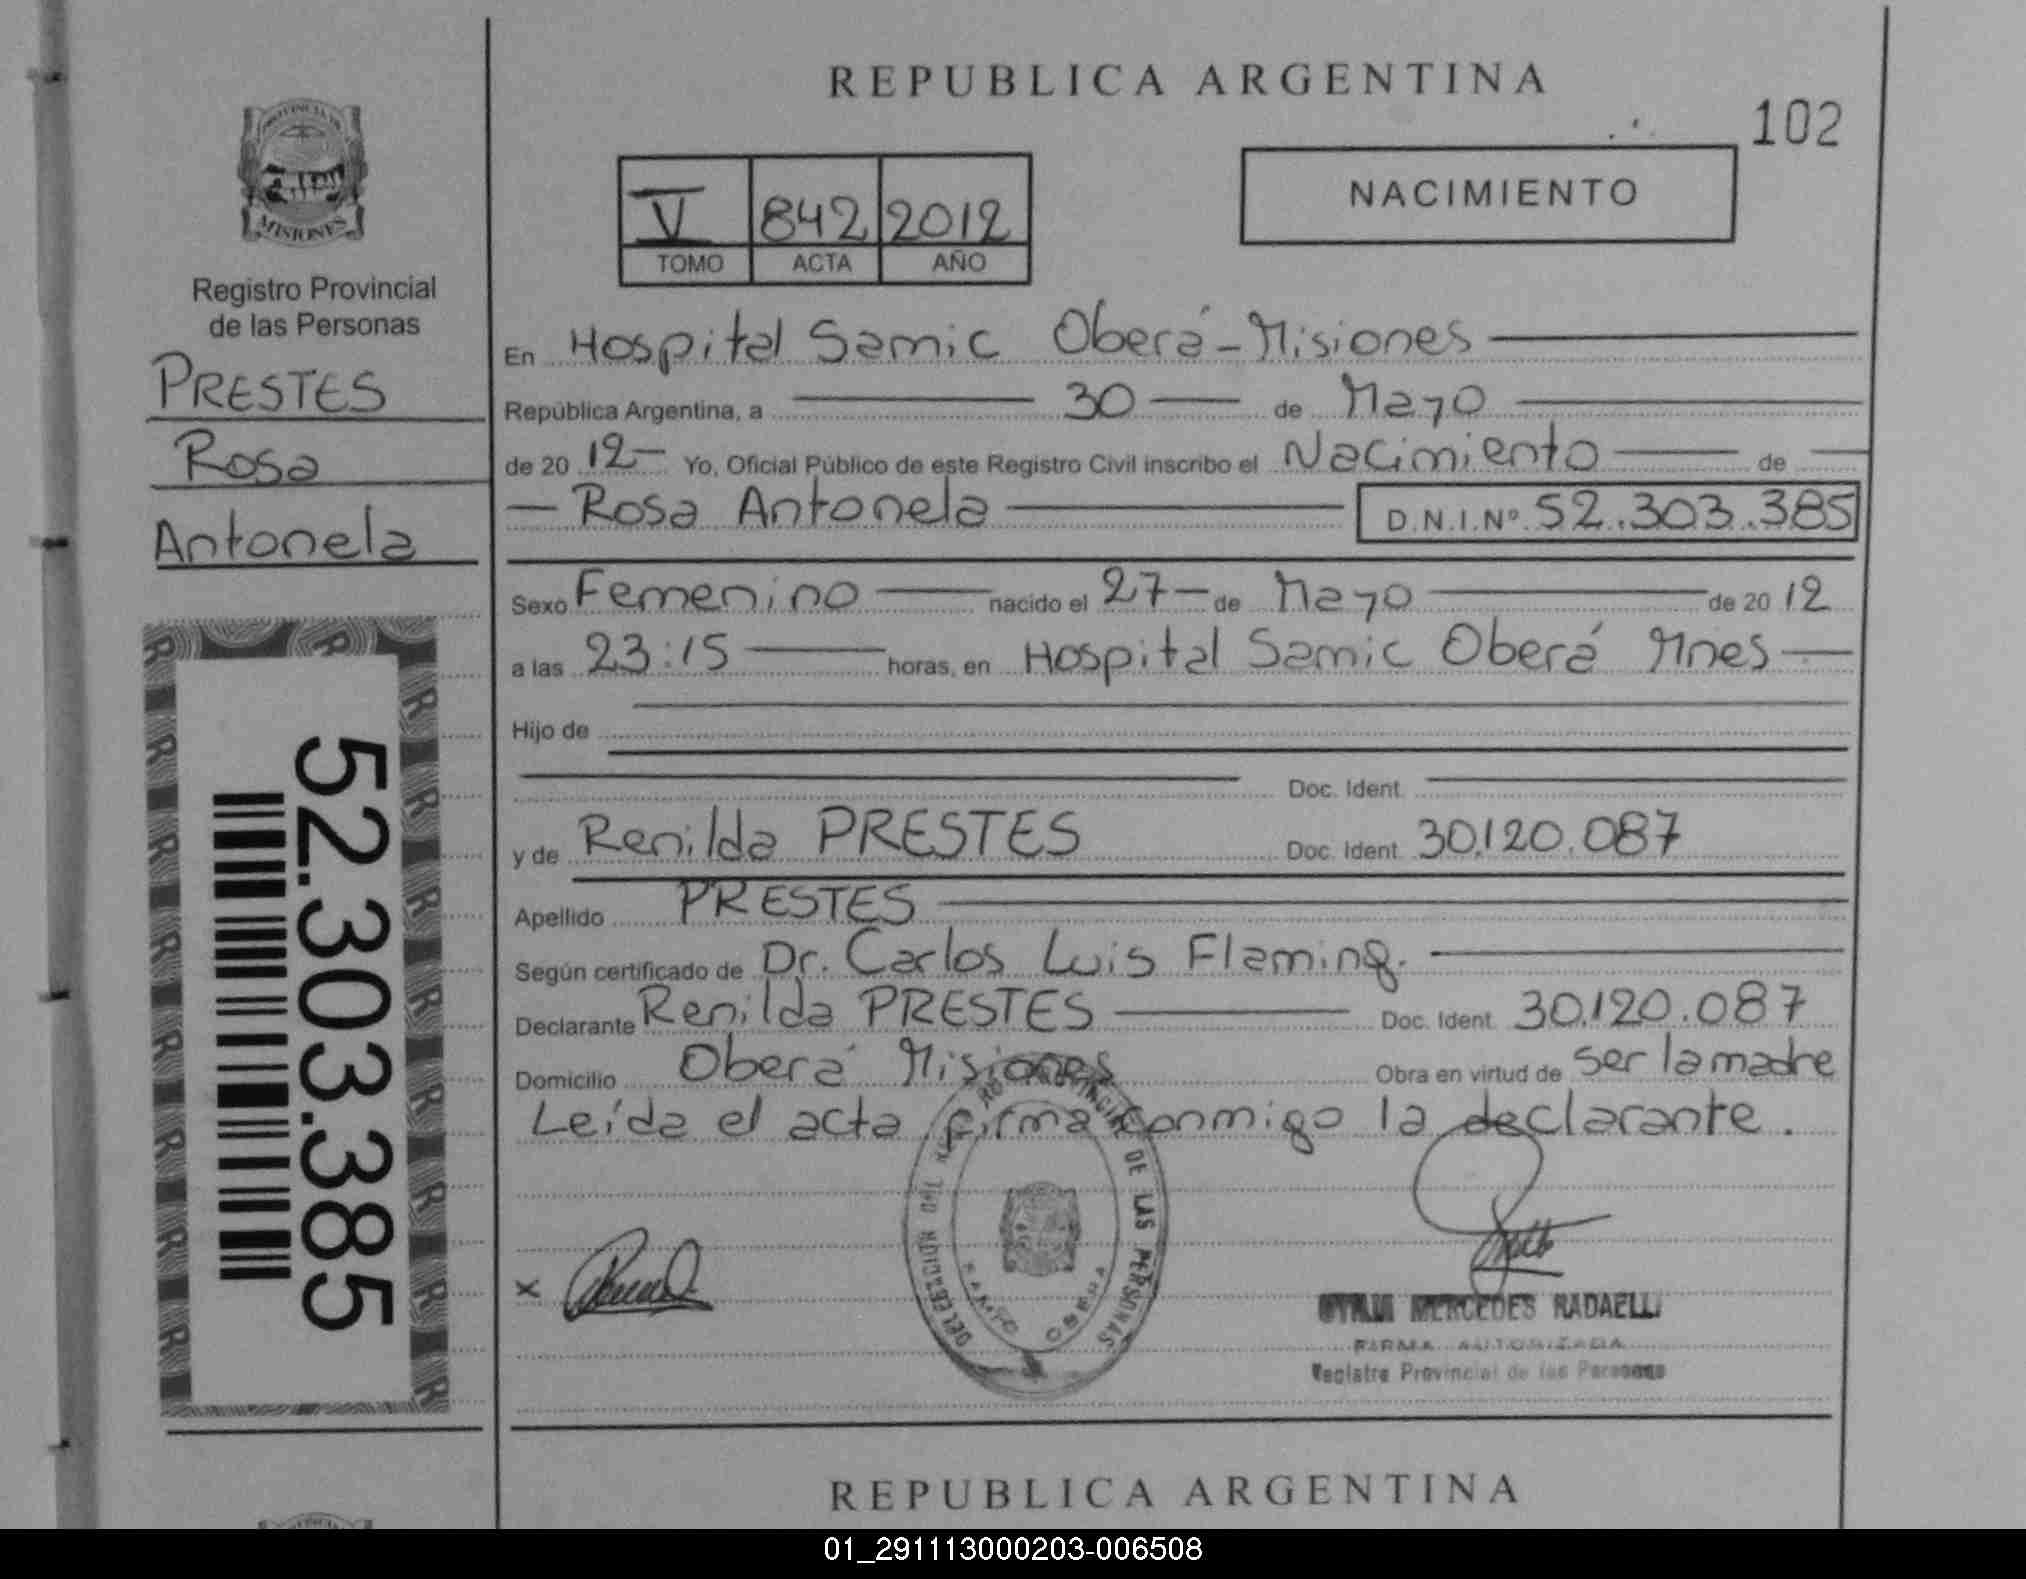 REPUBLICA ARGENTINA
102
PROVINCIA DE
MISIONES
Registro Provincial
de las Personas
PRESTES
Rosa
Antonela
52.303.385
V 842 2012
TOMO ACTA AÑO
NACIMIENTO
En Hospital Samic Oberá - Misiones
República Argentina, a 30 de Mayo
de 20 12 Yo, Oficial Público de este Registro Civil inscribo el Nacimiento de
Rosa Antonela D.N.I.Nº 52.303.385
Sexo Femenino nacido el 27 de Mayo de 20 12
a las 23:15 horas, en Hospital Samic Oberá Mnes
Hijo de
Doc. Ident.
y de Renilda PRESTES Doc. Ident. 30.120.087
Apellido PRESTES
Según certificado de Dr. Carlos Luis Flaming.
Declarante Renilda PRESTES Doc. Ident. 30.120.087
Domicilio Oberá Misiones Obra en virtud de ser la madre
Leída el acta firma conmigo la declarante.
DE LAS PERSONAS
OBERA
X
MERCEDES RADAELLI
FIRMA AUTORIZADA
Registro Provincial de las Personas
REPUBLICA ARGENTINA
01_291113000203-006508